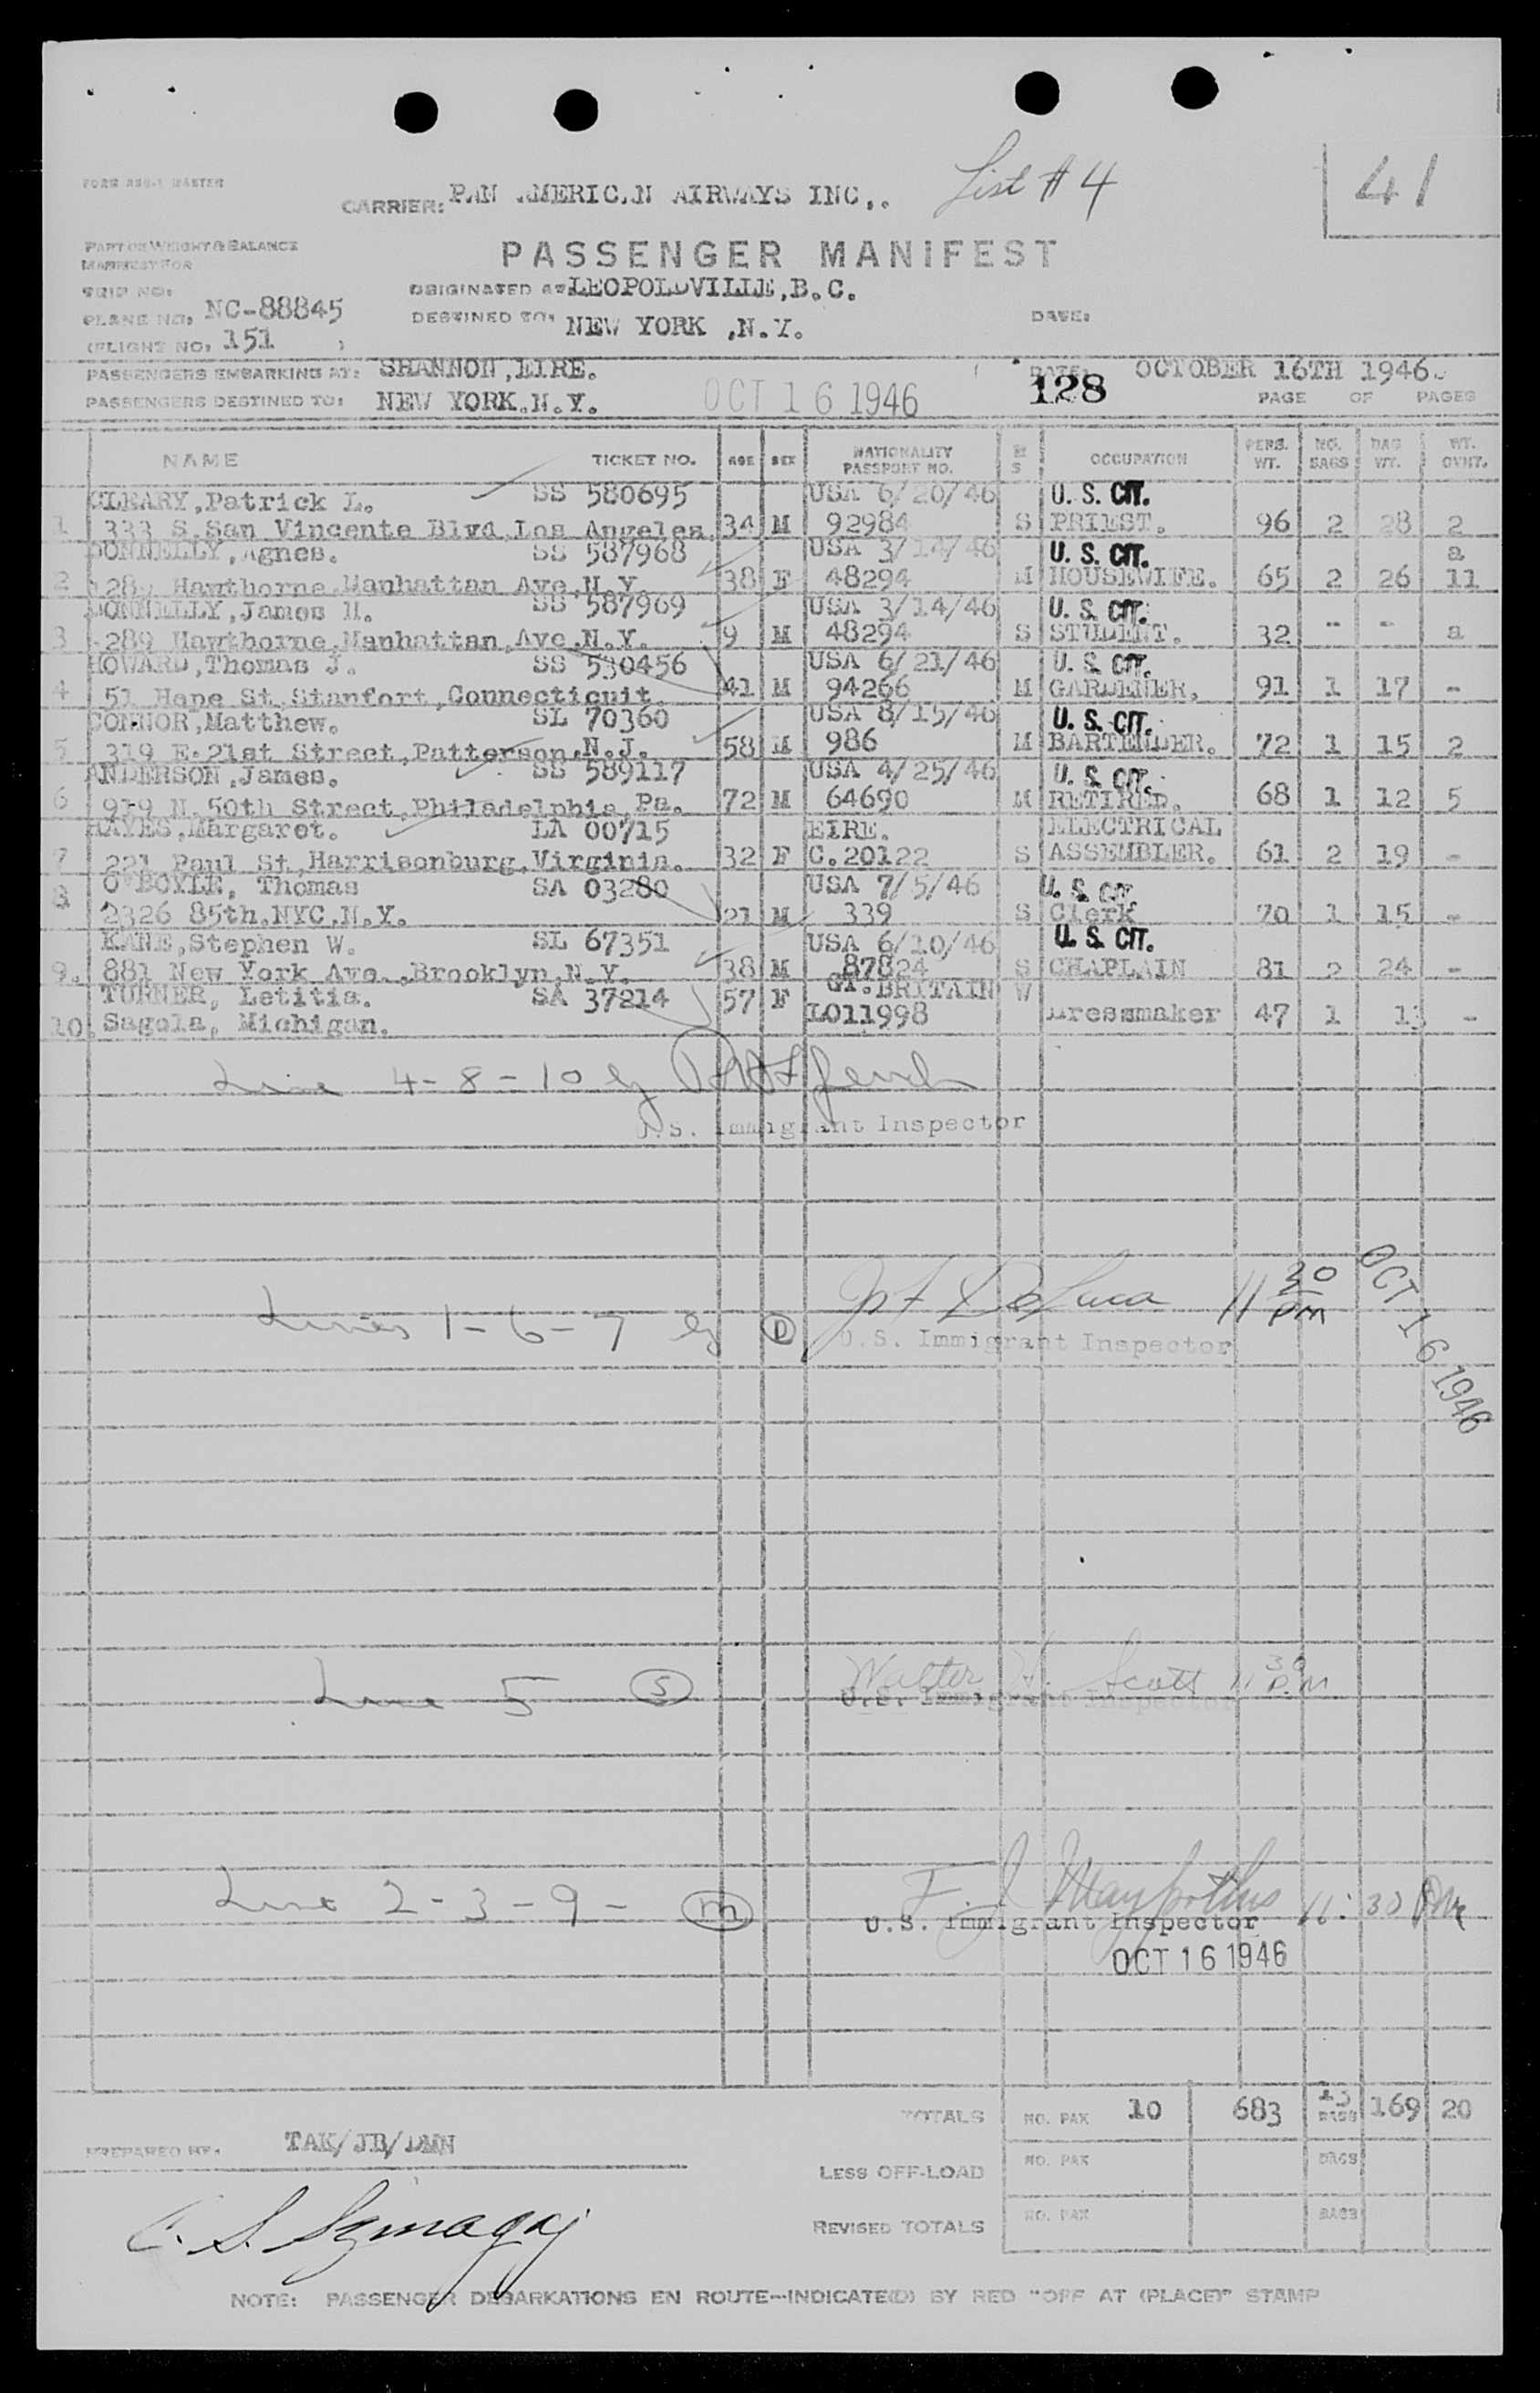 List # 4
41
FORM MASTER
CARRIER: PAN AMERICAN AIRWAYS INC,.
PART OF WEIGHT & BALANCE
MANIFEST FOR
PASSENGER MANIFEST
TRIP NO:
ORIGINATED AT LEOPOLDVILLE,B.C.
PLANE NO: NC-88845
DESTINED TO: NEW YORK ,N.Y.
DATE:
(FLIGHT NO: 151 )
PASSENGERS EMBARKING AT: SHANNON,EIRE.
DATE: OCTOBER 16TH 1946.
PASSENGERS DESTINED TO: NEW YORK.N.Y.
OCT 16 1946
128
PAGE OF PAGES
NAME TICKET NO. AGE SEX NATIONALITY PASSPORT NO. M S OCCUPATION PERS. WT. NO. BAGS BAG WT. WT. OVHT.
CLEARY,Patrick L. SS 580695 USA 6/20/46 U. S. CIT.
1 333 S.San Vincente Blvd.Los Angeles. 34 M 92984 S PRIEST. 96 2 28 2
DONNELLY,Agnes. SS 587968 USA 3/14/46 U. S. CIT. a
2 289 Hawthorne.Manhattan Ave.N.Y. 38 F 48294 M HOUSEWIFE. 65 2 26 11
DONNELLY,James H. SS 587969 USA 3/14/46 U. S. CIT.
3 289 Hawthorne.Manhattan.Ave.N.Y. 9 M 48294 S STUDENT. 32 - - a
HOWARD,Thomas J. SS 530456 USA 6/21/46 U. S. CIT.
4 51 Hope St.Stanfort,Connecticuit. 41 M 94266 M GARDENER, 91 1 17 -
CONNOR,Matthew. SL 70360 USA 8/15/46 U. S. CIT.
5 319 E.21st Street,Patterson,N.J. 58 M 986 M BARTENDER. 72 1 15 2
ANDERSON,James. SS 589117 USA 4/25/46 U. S. CIT.
6 919 N.50th Street,Philadelphia,Pa. 72 M 64690 M RETIRED. 68 1 12 5
HAYES,Margaret. LA 00715 EIRE. ELECTRICAL
7 221 Paul St.Harrisonburg,Virginia. 32 F C.20122 S ASSEMBLER. 61 2 19 -
O'BOYLE, Thomas SA 03280 USA 7/5/46 U. S. CIT
8 2326 85th.NYC.N.Y. 21 M 339 S Clerk 70 1 15 -
KANE,Stephen W. SL 67351 USA 6/10/46 U. S. CIT.
9. 881 New York Ave.,Brooklyn,N.Y. 38 M 87824 S CHAPLAIN 81 2 24 -
TURNER, Letitia. SA 37214 57 F GT.BRITAIN W
10. Sagola, Michigan. L011998 Dressmaker 47 1 13 -
Line 4-8-10 by
U.S. Immigrant Inspector
Lines 1-6-7 by D Jos F DeLuca 11 30 pm
U.S. Immigrant Inspector
OCT 16 1946
Line 5 S Walter H. Scott 11 30 P.M
U.S. Immigrant Inspector
Line 2-3-9- m F. J. 11:30 PM
U.S. Immigrant Inspector
OCT 16 1946
TOTALS NO. PAX 10 683 13 BAGS 169 20
PREPARED BY: TAK/JB/DMN
LESS OFF-LOAD NO. PAX BAGS
REVISED TOTALS NO. PAX BAGS
NOTE: PASSENGER DEBARKATIONS EN ROUTE—INDICATE(D) BY RED "OFF AT (PLACE)" STAMP